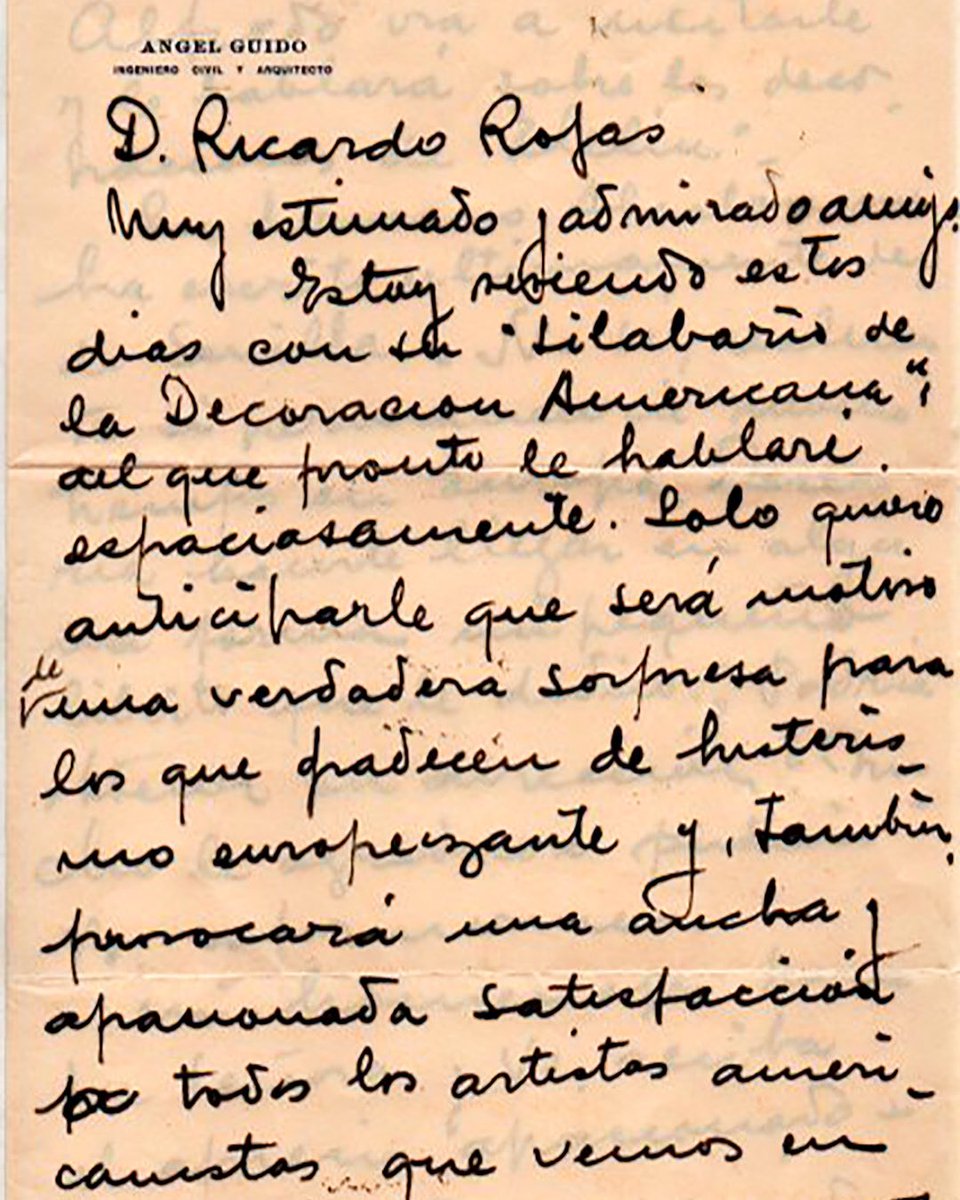 ANGEL GUIDO
INGENIERO CIVIL Y ARQUITECTO
D. Ricardo Rojas
Muy estimado y admirado amigo.
Estoy viviendo estos
dias con su "Silabario de
la Decoracion Americana",
del que pronto le hablaré.
espaciosamente. Solo quiero
anticiparle que será motivo
de
una verdadera sorpresa para
los que padecen de histeris-
mo europeizante y, también,
provocará una ancha y
apasionada satisfacción
todos los artistas ameri-
canistas que vemos en